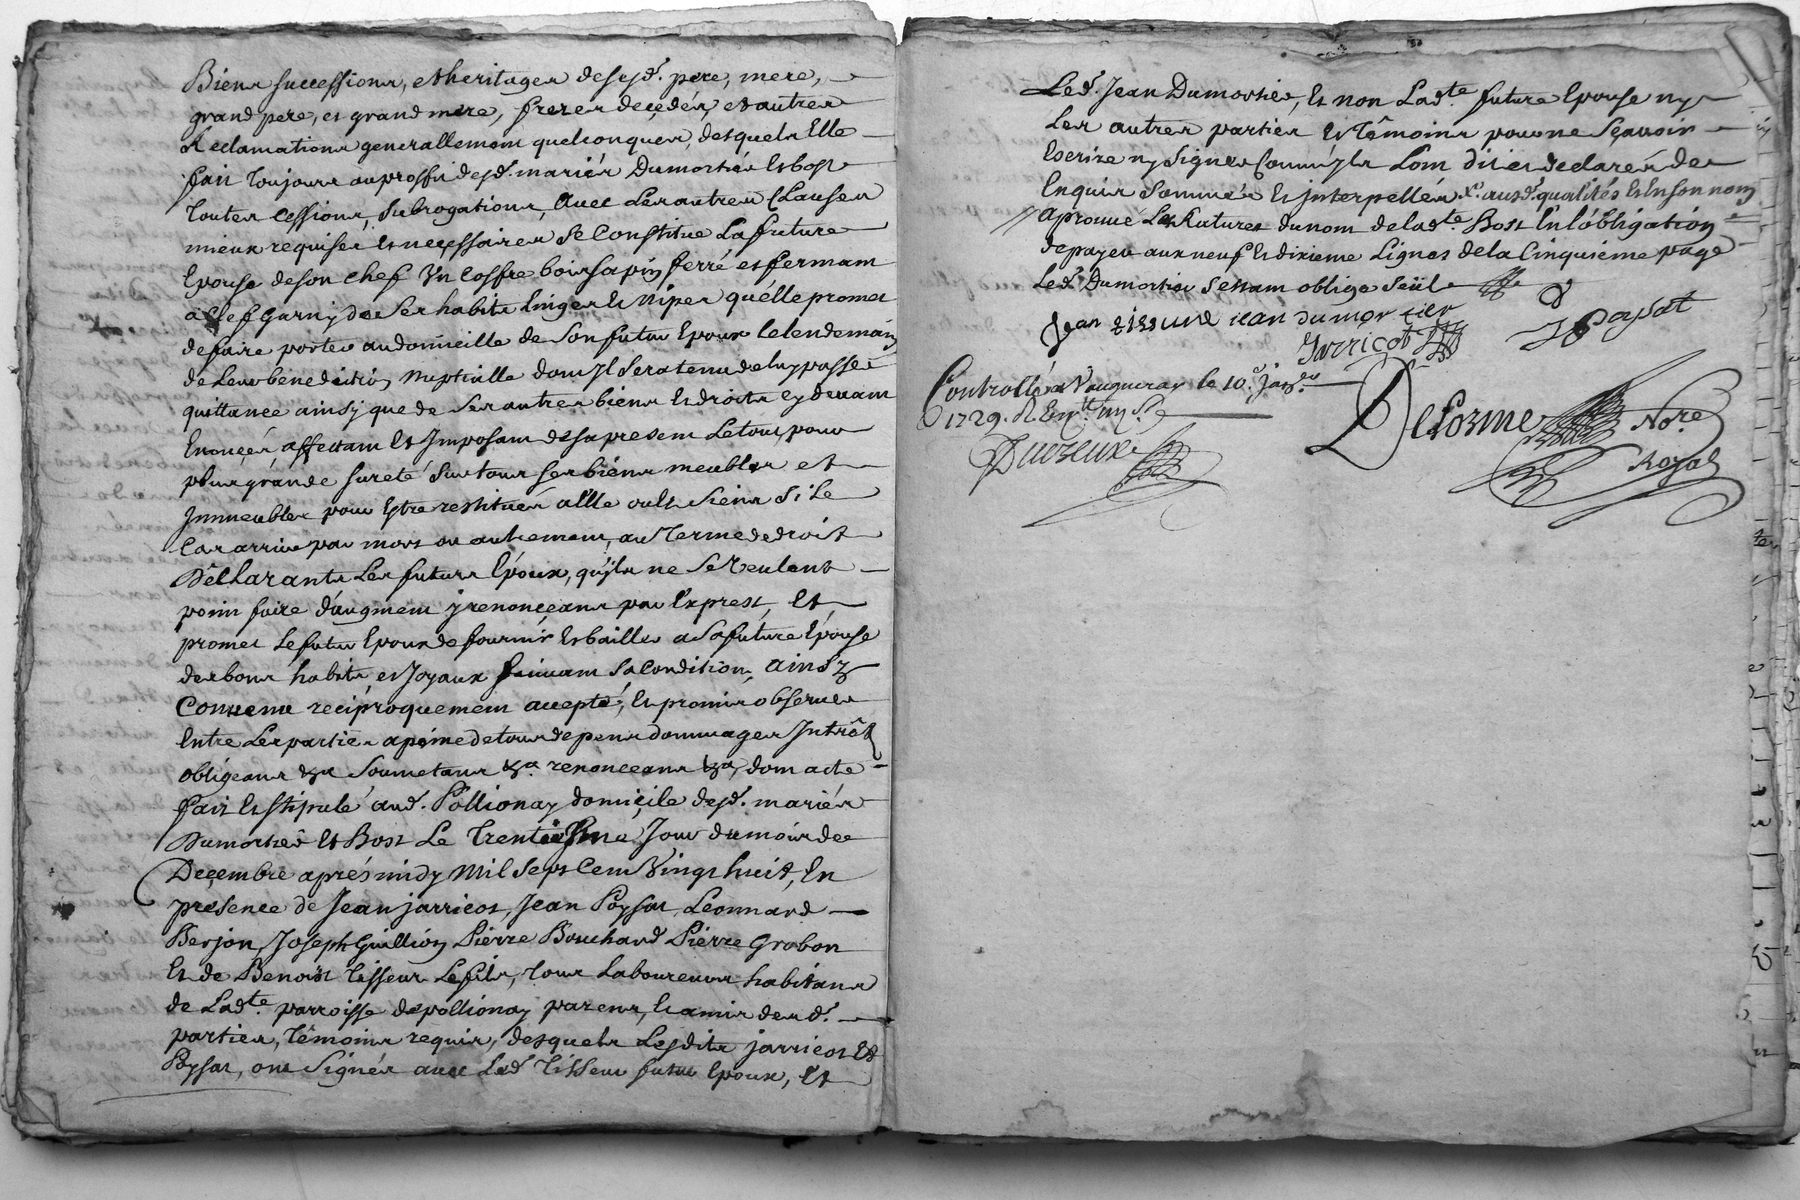 Biens successions, et heritages desesd. pere, mere,
grand pere, et grand mere, freres decedés, et autres
Reclamations generallement quelconques, desquels Elle
fait toujours au proffit desd. mariés Dumortier et Bost
toutes Cessions, Subrogations, avec Les autres Clauses
mieux requises et necessaires Se Constitue La future
Epouse de son Chef Un Coffre bois sapin ferré et fermant
à Clef garny de Ses habits linges et Nipes quelle promet
de faire porter au domicille de Son futur Epoux le lendemain
de Leur benediction Nuptialle dont Il Sera tenu de luy passer
quittance ainsy que de Ses autres biens et droits cy devant
Enoncés, affectant et Imposant des a present Le tout, pour
plus grande sureté Sur tous ses biens meubles et
Immeubles pour Estre restitués a Elle ou les Siens Si Le
Cas arrive par mort ou autrement, au Terme de droit
Declarants Les futurs Epoux, qu'ils ne Se Veulent
point faire d'augment y renonçeans par Exprest, Et
promet Le futur Epoux de fournir et bailler a Sa future Epouse
des bons habits et Joyaux Suivant Sa Condition, Ainsy
Convenu reciproquement accepté, et promis observer
Entre Les parties a peine de tous depens dommages Intrêts
obligeans &a Soumetans &a. renonceans &a, dont acte
fait et stipulé aud. Pollionay domicile desd. mariés
Dumortier et Bost Le Trentiesme Jour du mois de
Decembre après midy Mil Sept Cent Vingt huit, En
presence de Jean jarricot, Jean Poysat, Leonnard
Berjon, Joseph Guillion Pierre Bouchard Pierre Grobon
Et de Benoist Tisseur Le fils, tous Laboureurs habitans
de Ladte. parroisse de pollionay parens, et amis desd.
parties, Têmoins requis, desquels Lesdits jarricot et
Poysat, ont Signés avec Led Tisseur futur Epoux, Et
Led. Jean Dumortier, Et non Ladte. future Epouse ny
Les autres parties et Têmoins pour ne Sçavoir
Escrire ny Signer Comm'Ils Lont dit et declaré de
Enquis Sommés et Interpellés X ausd. qualités et En son nom
aprouvé Les Ratures du nom de ladte. Bost En L'obligation
de payer aux neuf et dixieme Lignes de la Cinquieme page
Led. Dumortier S'estant obligé Seul
Jean tisseur jean du mor tier
J Poysat
Jarricot
Controllé a Vaugneray le 10.e Janer.
1729. R
Ducreux
Delorme Nore.
Royal